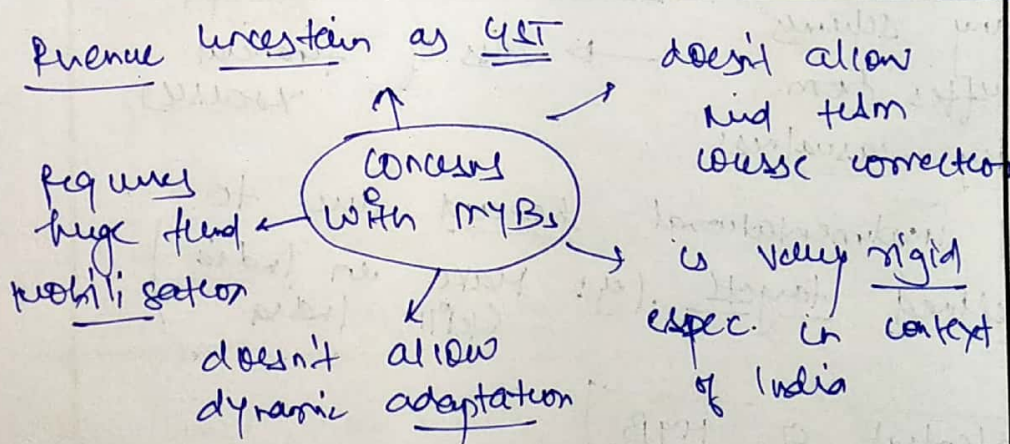 Revenue uncertain as GST
doesn't allow
mid term
course correction
concerns
with MYBs
requires
huge fund
mobilisation
is very rigid
espec. in context
of India
doesn't allow
dynamic adaptation